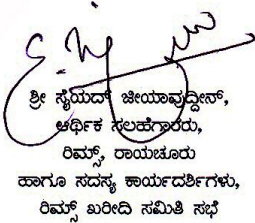 ಶ್ರೀ ಸೈಯದ್ ಜೀಯಾವುದ್ದೀನ್,
ಆರ್ಥಿಕ ಸಲಹೆಗಾರರು,
ರಿಮ್ಸ್, ರಾಯಚೂರು
ಹಾಗೂ ಸದಸ್ಯ ಕಾರ್ಯದರ್ಶಿಗಳು,
ರಿಮ್ಸ್ ಖರೀದಿ ಸಮಿತಿ ಸಭೆ